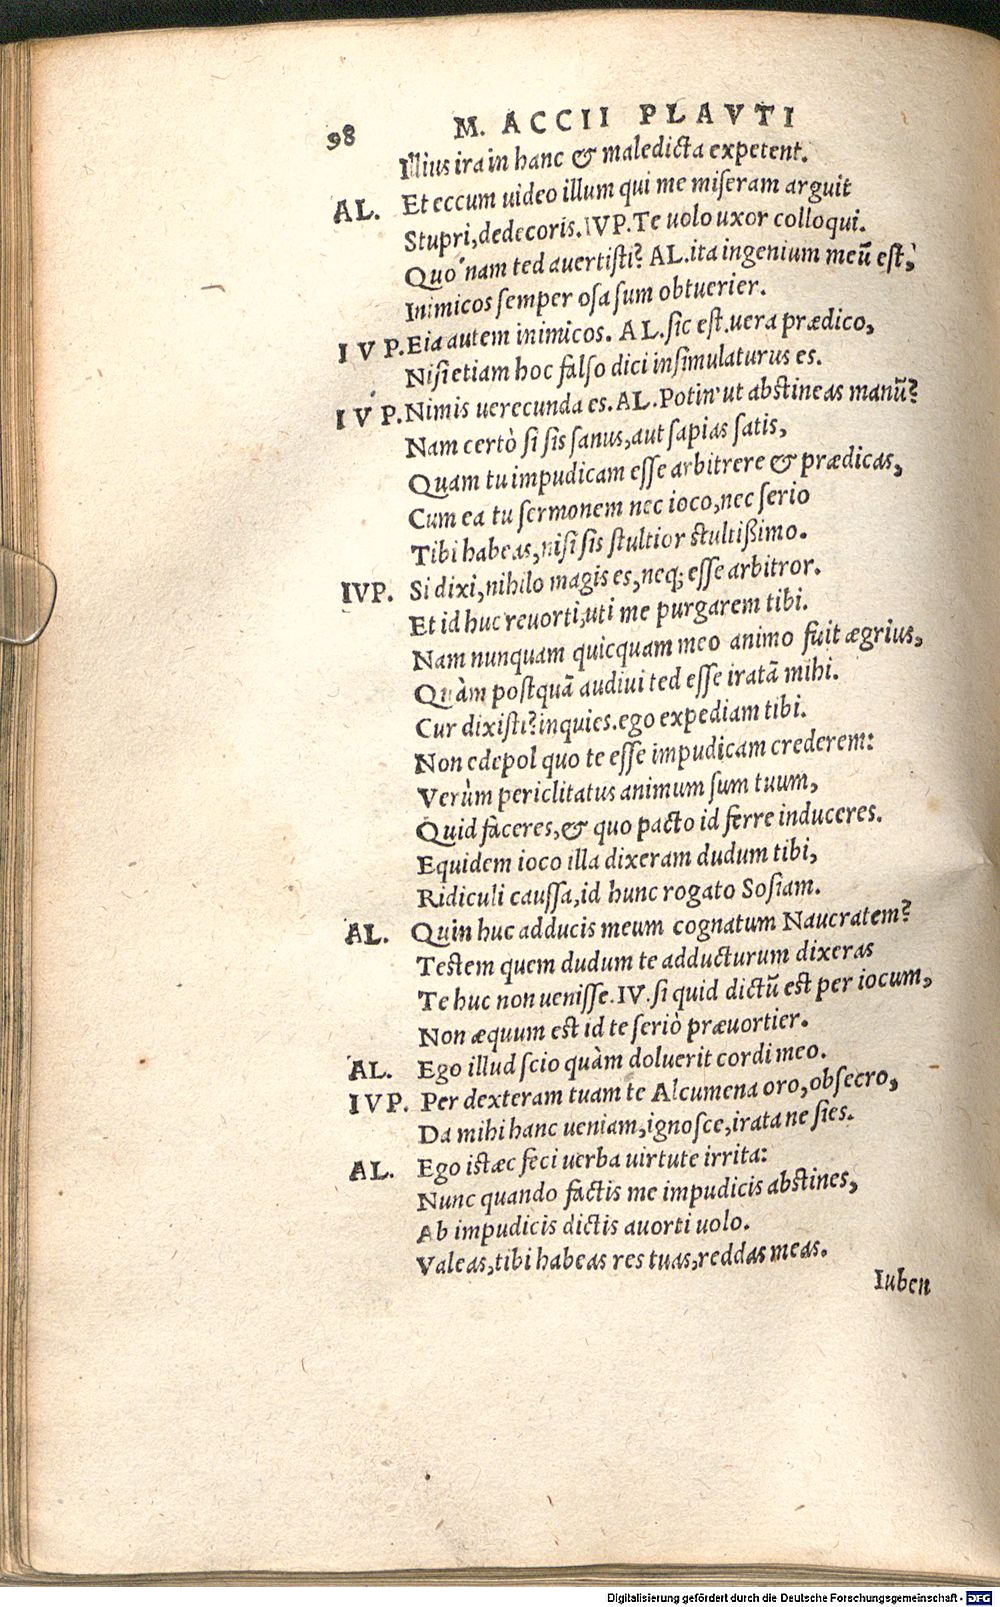 98 M. ACCII PLAVTI
Illius ira in hanc & maledicta expetent.
AL. Et eccum uideo illum qui me miseram arguit
Stupri, dedecoris. IVP. Te uolo uxor colloqui.
Quo nam ted auertisti? AL. ita ingenium meũ est,
Inimicos semper osa sum obtuerier.
IVP. Eia autem inimicos. AL. sic est. uera prædico,
Nisi etiam hoc falso dici insimulaturus es.
IVP. Nimis uerecunda es. AL. Potin' ut abstineas manũ?
Nam certò si sis sanus, aut sapias satis,
Quam tu impudicam esse arbitrere & prædicas,
Cum ea tu sermonem nec ioco, nec serio
Tibi habeas, nisi sis stultior stultißimo.
IVP. Si dixi, nihilo magis es, neq; esse arbitror.
Et id huc reuorti, uti me purgarem tibi.
Nam nunquam quicquam meo animo fuit ægrius,
Quàm postquã audiui ted esse iratã mihi.
Cur dixisti? inquies. ego expediam tibi.
Non edepol quo te esse impudicam crederem:
Verùm periclitatus animum sum tuum,
Quid faceres, & quo pacto id ferre induceres.
Equidem ioco illa dixeram dudum tibi,
Ridiculi caussa, id hunc rogato Sosiam.
AL. Quin huc adducis meum cognatum Naucratem?
Testem quem dudum te adducturum dixeras
Te huc non uenisse. IV. si quid dictũ est per iocum,
Non æquum est id te seriò præuortier.
AL. Ego illud scio quàm doluerit cordi meo.
IVP. Per dexteram tuam te Alcumena oro, obsecro,
Da mihi hanc ueniam, ignosce, irata ne sies.
AL. Ego istæc feci uerba uirtute irrita:
Nunc quando factis me impudicis abstines,
Ab impudicis dictis auorti uolo.
Valeas, tibi habeas res tuas, reddas meas.
Iuben
Digitalisierung gefördert durch die Deutsche Forschungsgemeinschaft - DFG